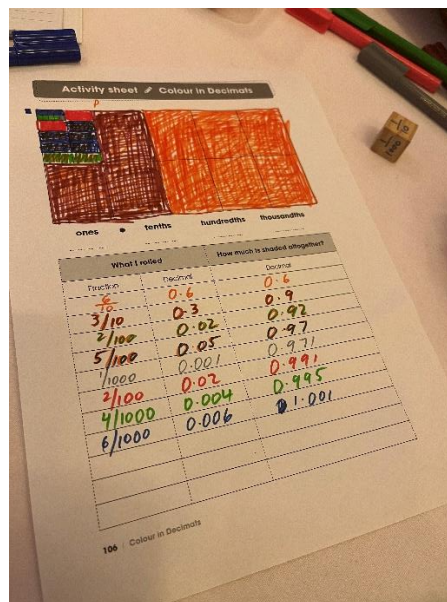 Activity sheet Colour in Decimals
P
ones • tenths hundredths thousandths
What I rolled How much is shaded altogether?
Fraction Decimal Decimal
6/10 0.6 0.6
3/10 0.3 0.9
2/100 0.02 0.92
5/100 0.05 0.97
1/1000 0.001 0.971
2/100 0.02 0.991
4/1000 0.004 0.995
6/1000 0.006 1.001
106 Colour in Decimals